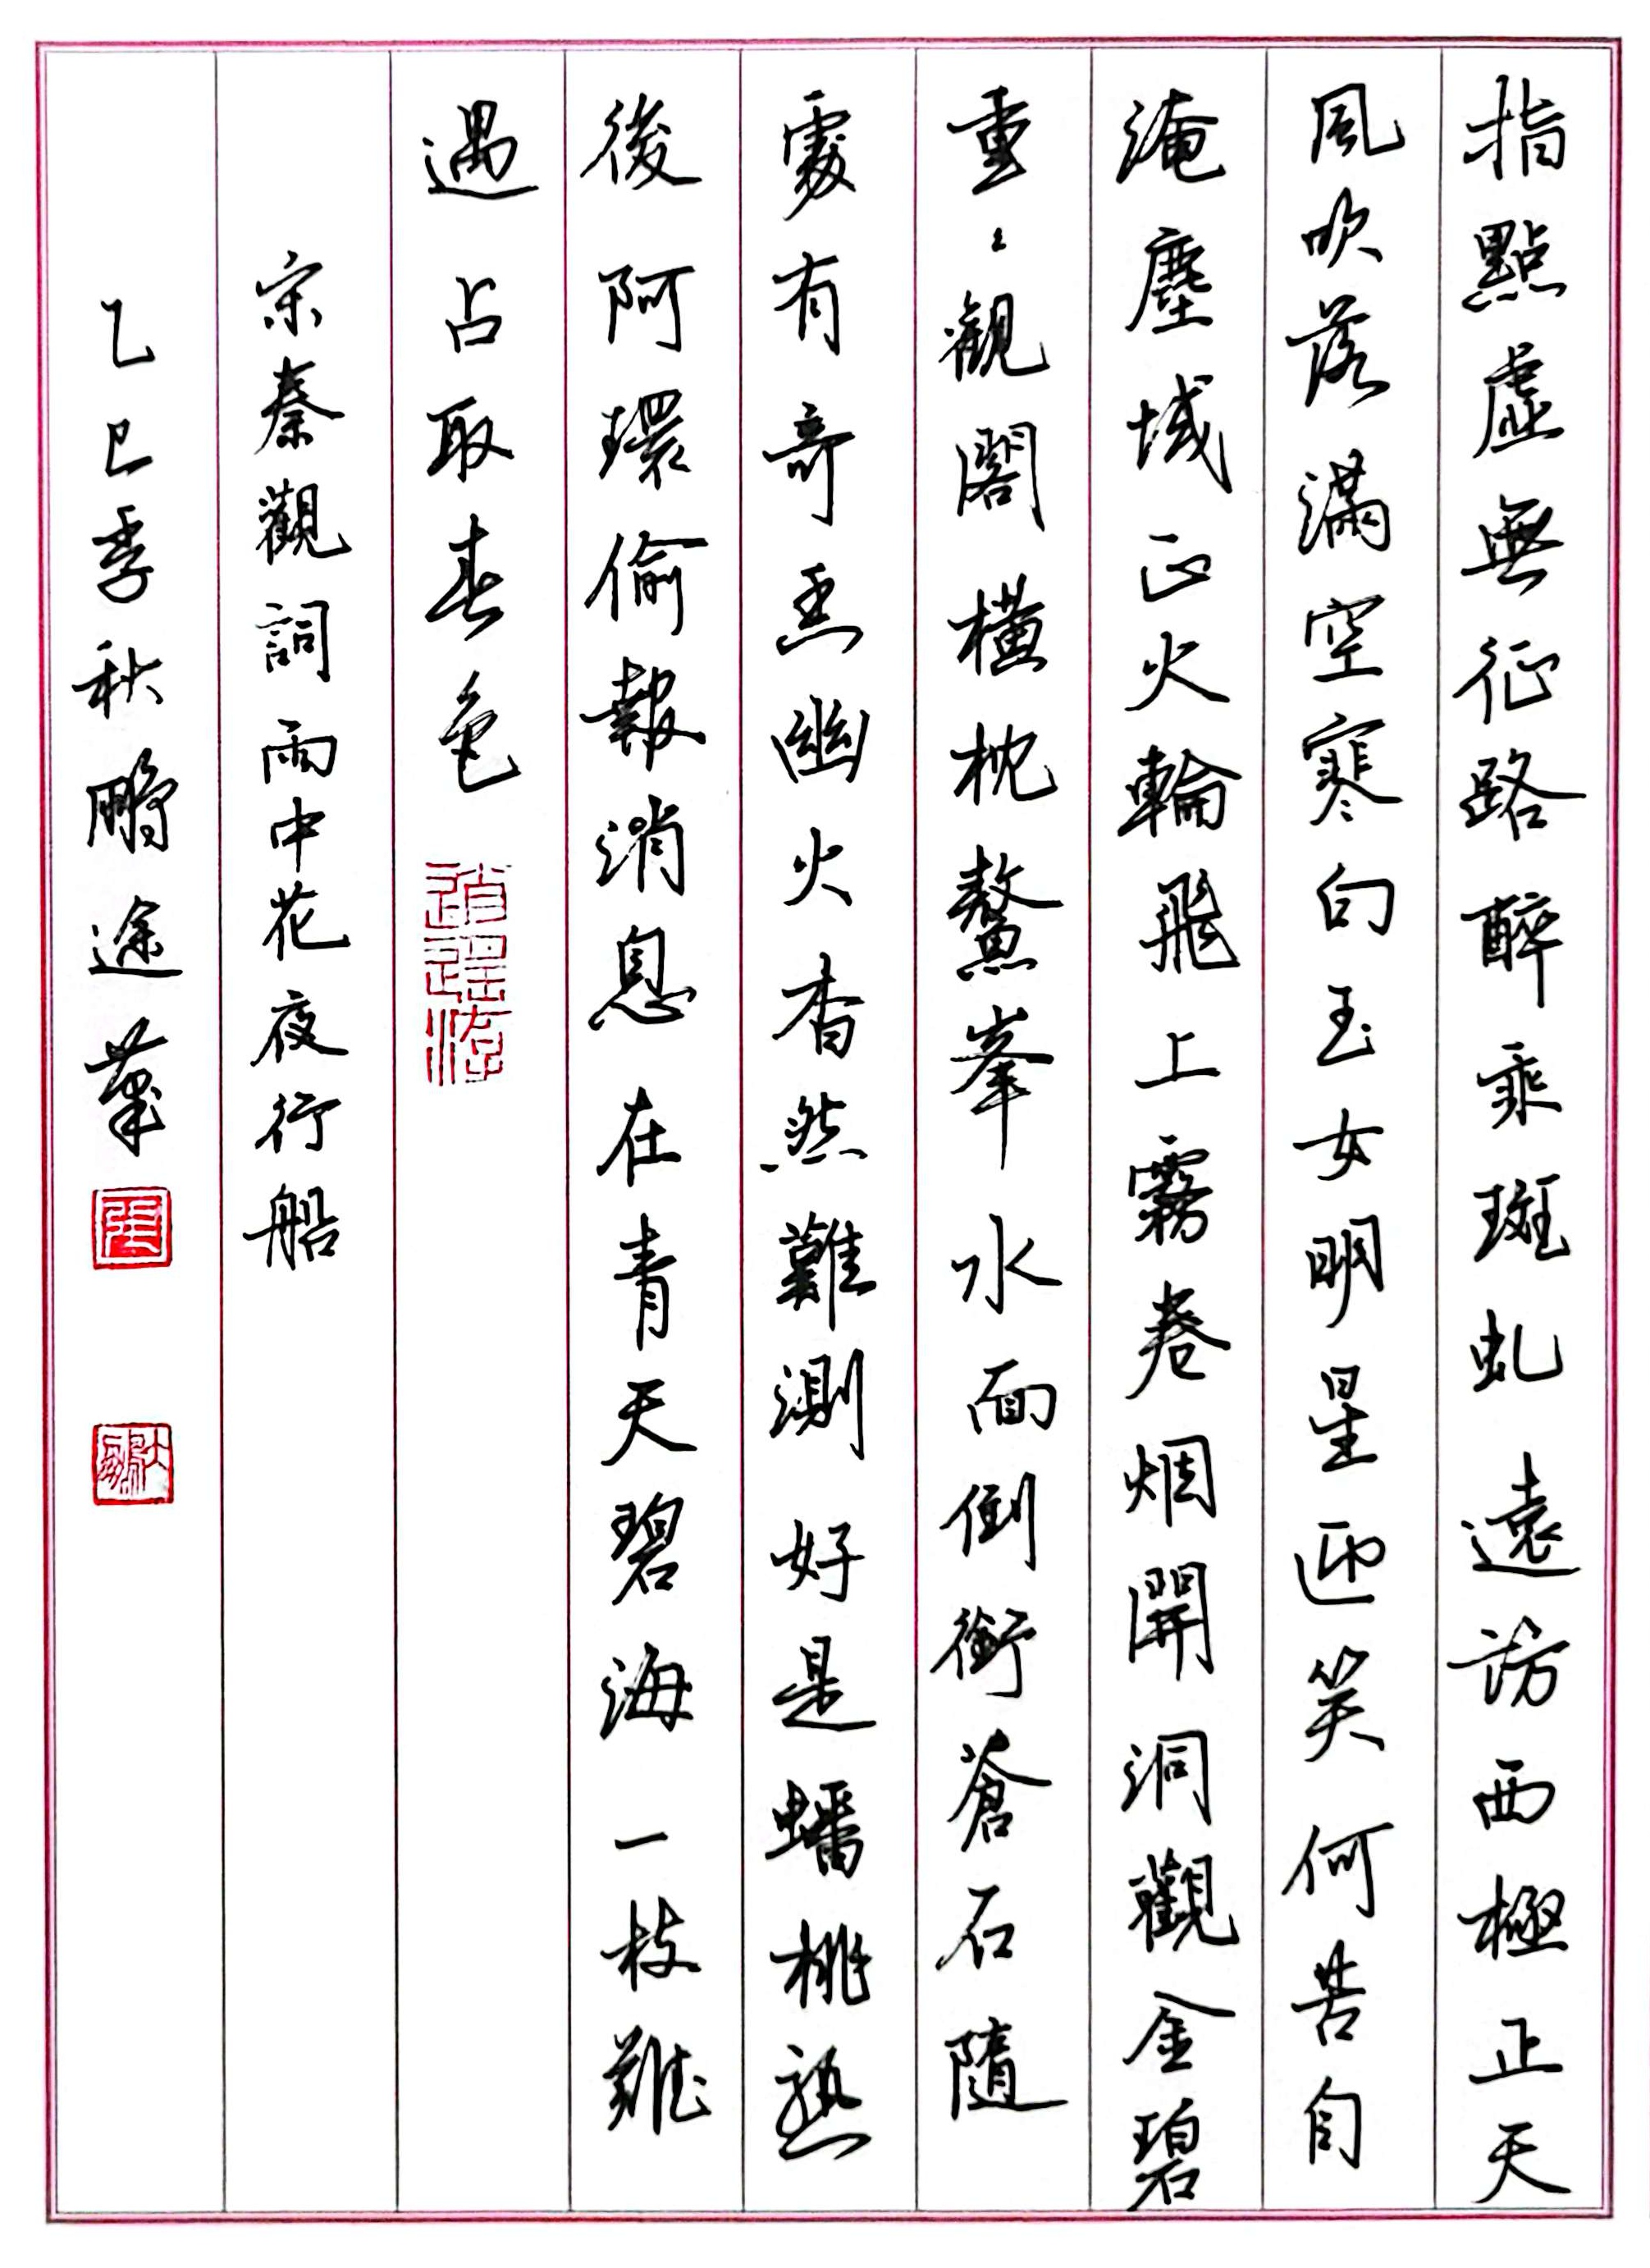 指點虛無征路醉乘斑虬遠訪西極正天
風吹落滿空寒白玉女明星迎笑何苦自
淹塵域正火輪飛上霧卷烟開洞觀金碧
重〻觀閣橫枕鰲峯水面倒銜蒼石隨
處有奇香幽火杳然難測好是蟠桃熟
後阿環偷報消息在青天碧海一枝難
遇占取春色
宋秦觀詞雨中花夜行船
乙巳季秋鵬途筆